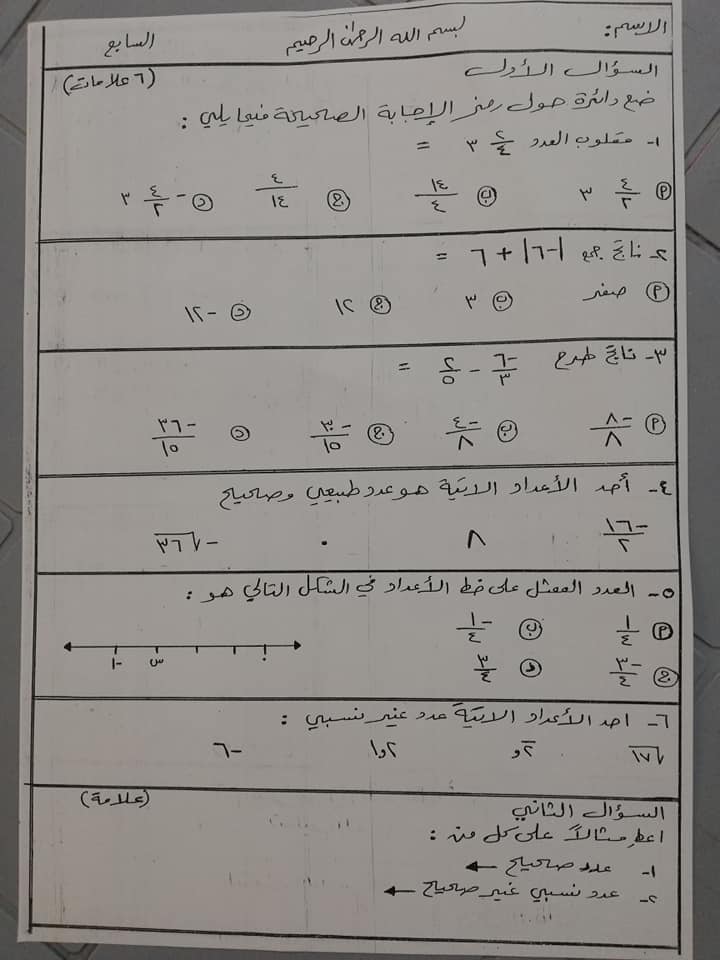 الاسم: بسم الله الرحمن الرحيم السابع
السؤال الأول (٦ علامات)
ضع دائرة حول رمز الإجابة الصحيحة فيما يلي :
١- مقلوب العدد ٣ ٢/٤ =
أ) ٣ ٤/٢ ب) ١٤/٤ ج) ٤/١٤ د) -٣ ٤/٢
٢- ناتج جمع |-٦| + ٦ =
أ) صفر ب) ٣ ج) ١٢ د) -١٢
٣- ناتج طرح -٦/٣ - ٢/٥ =
أ) -٨/٨ ب) -٤/٨ ج) -٣٠/١٥ د) -٣٦/١٥
٤- أحد الأعداد الاتية هو عدد طبيعي وصحيح
-١٦/٢ ٨ ٠ -√٣٦
٥- العدد الممثل على خط الأعداد في الشكل التالي هو :
أ) ١/٤ ب) -١/٤
-١ س ٠
ج) -٣/٤ د) ٣/٤
٦- احد الأعداد الاتية عدد غير نسبي :
√١٧ ٢̅و ٢و١ -٦
السؤال الثاني (علامة)
اعطِ مثالاً على كل من :
١- عدد صحيح ←
٢- عدد نسبي غير صحيح ←